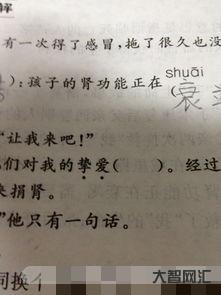 解
有一次得了感冒，拖了很久也没
)：孩子的肾功能正在(
shuāi
衰
“让我来吧！”
们对我的挚爱( )。经过
来捐肾。
”他只有一句话。
同换个
大智网汇